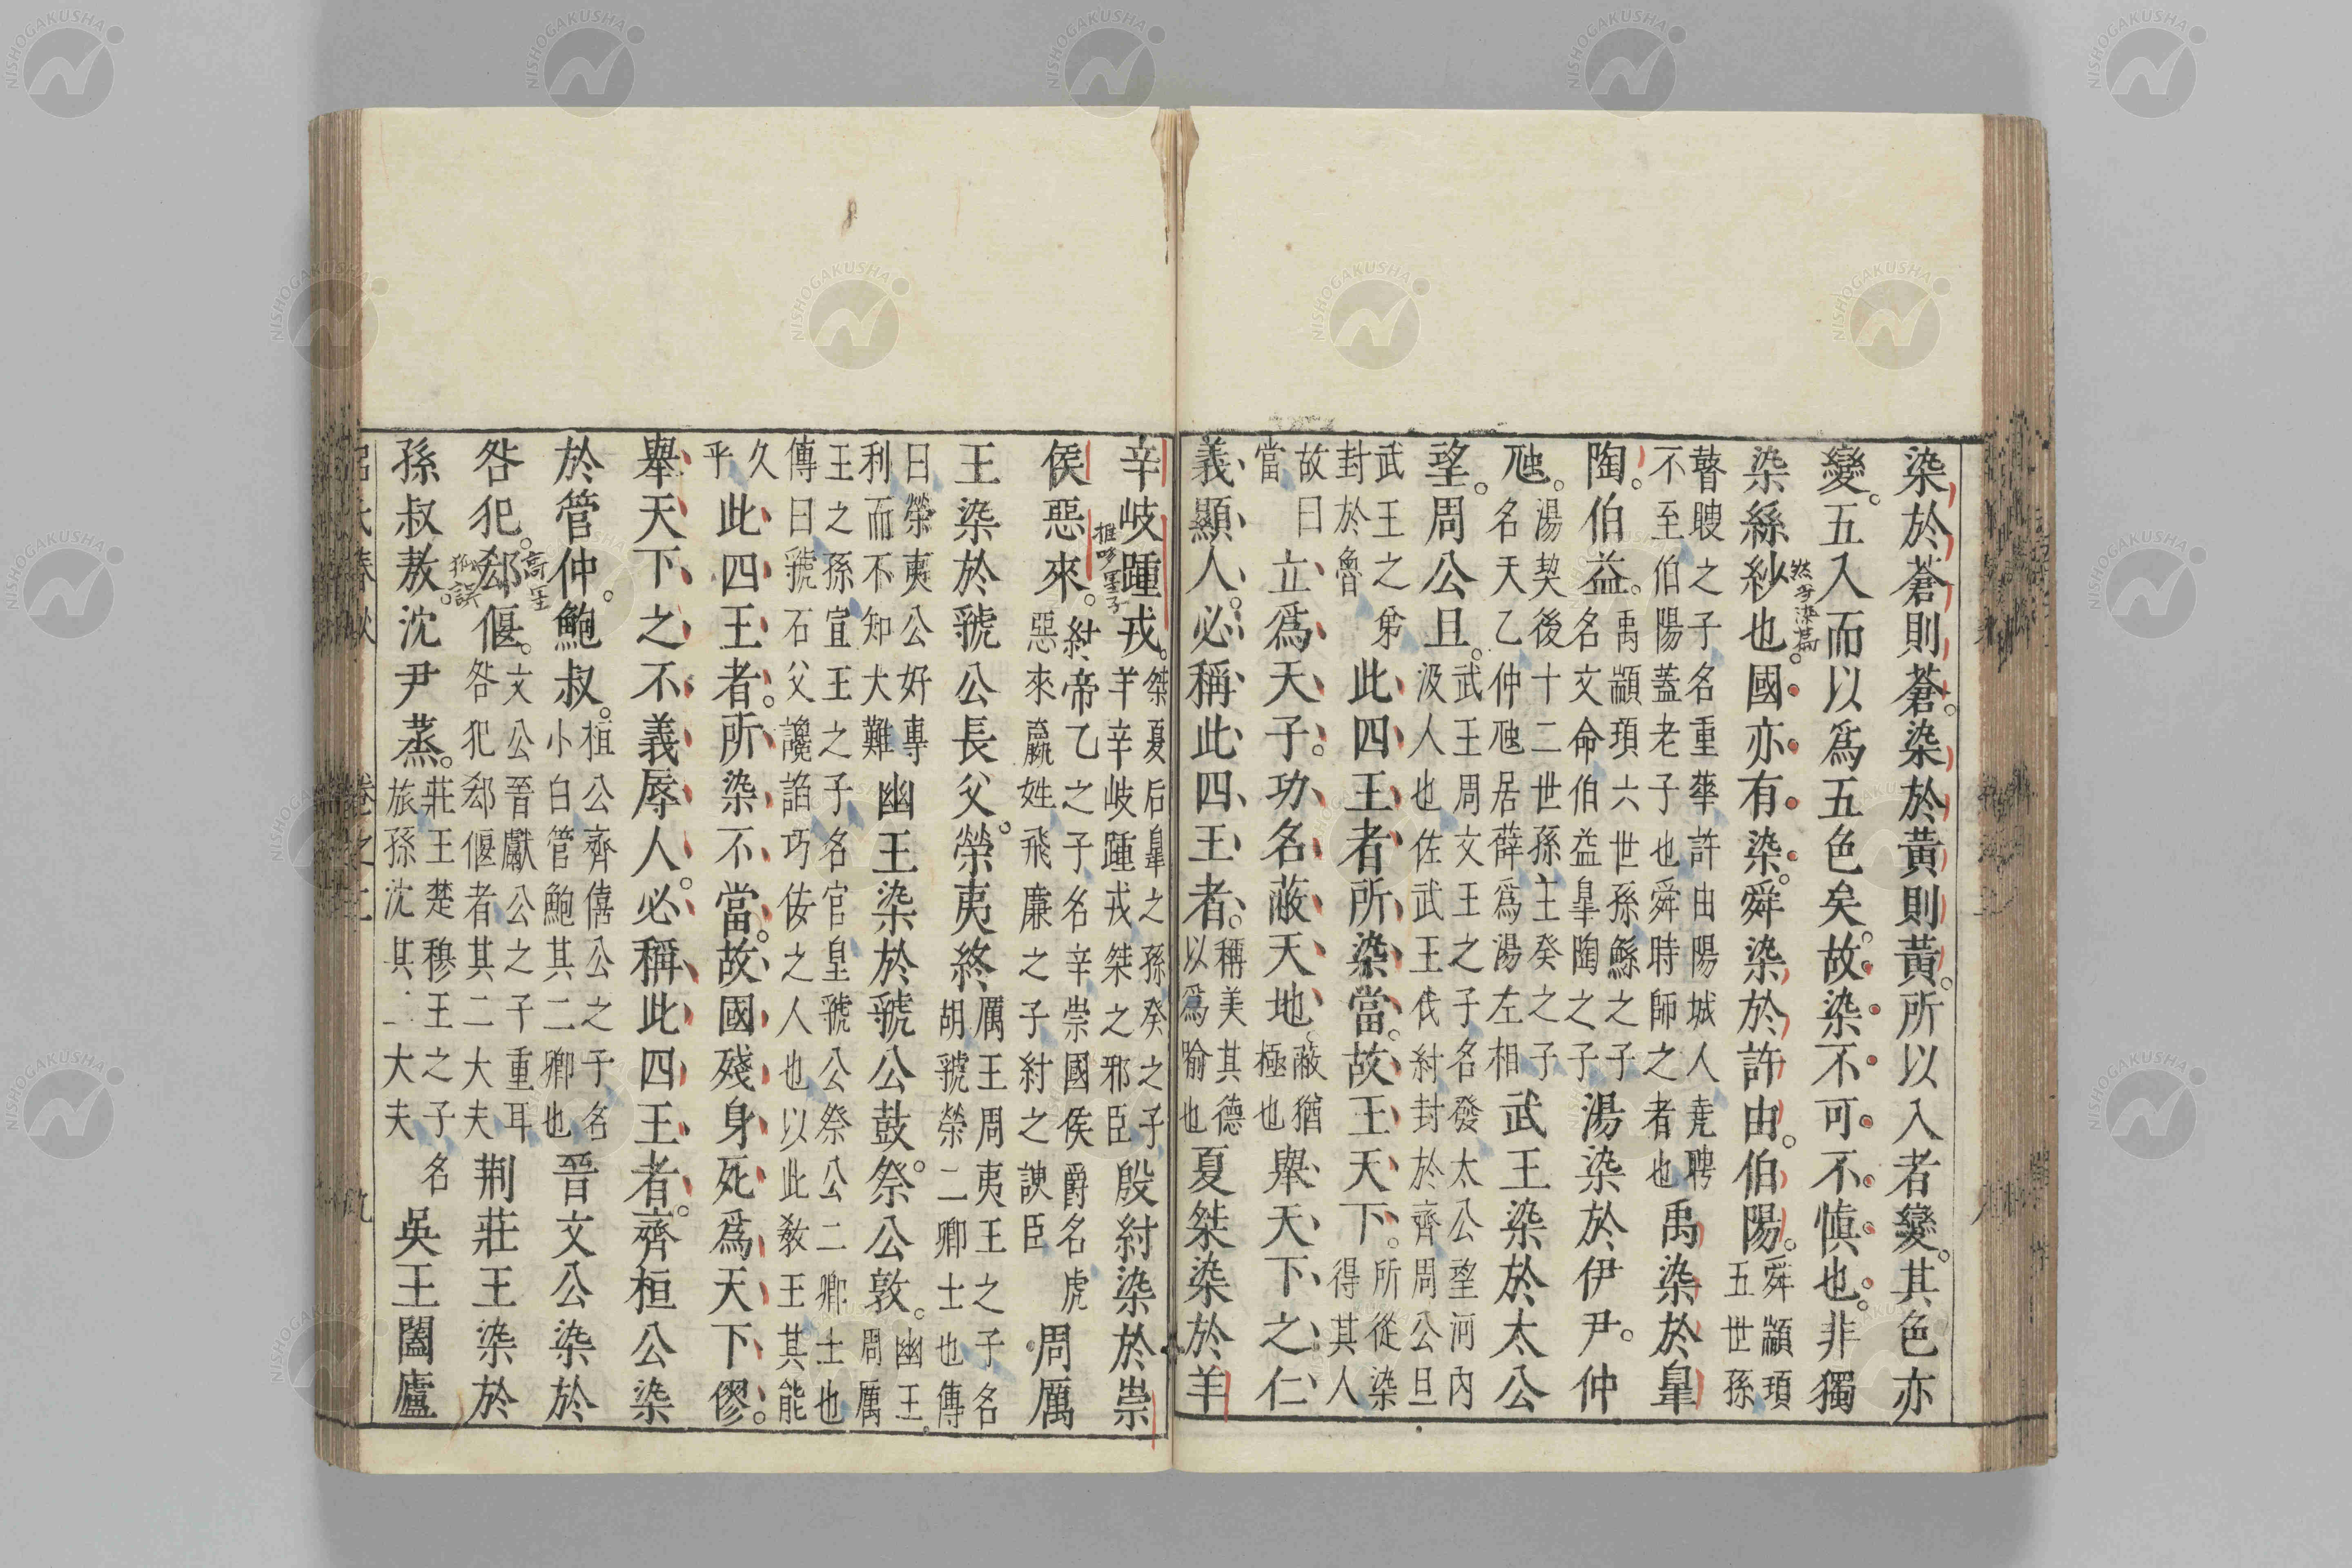 染於蒼則蒼。染於黃則黃。所以入者變。其色亦
變。五入而以爲五色矣。故染不可不慎也。非獨
染絲紗也。國亦有染。舜染於許由。伯陽。舜顓頊五世孫
瞽瞍之子名重華許由陽城人堯聘不至伯陽蓋老子也舜時師之者也禹染於臯
陶。伯益。禹顓頊六世孫鯀之子名文命伯益臯陶之子湯染於伊尹。仲
虺。湯契後十二世孫主癸之子名天乙仲虺居薛爲湯左相武王染於太公
望。周公旦。武王周文王之子名發太公望河內汲人也佐武王伐紂封於齊周公旦
武王之弟封於魯此四王者所染當。故王天下。所從染得其人
故曰當立爲天子。功名蔽天地。蔽猶極也舉天下之仁
義顯人。必稱此四王者。稱美其德以爲喻也夏桀染於羊
辛岐踵戎。桀夏后臯之孫癸之子羊辛岐踵戎桀之邪臣殷紂染於崇
推哆墨子
侯惡來。紂帝乙之子名辛崇國侯爵名虎惡來嬴姓飛廉之子紂之諛臣周厲
王染於虢公長父。榮夷終厲王周夷王之子名胡虢榮二卿士也傳
曰榮夷公好專利而不知大難幽王染於虢公鼓。祭公敦。幽王。周厲
王之孫宣王之子名官皇虢公祭公二卿士也傳曰虢石父讒諂巧佞之人也以此教王其能
久乎此四王者。所染不當。故國殘身死爲天下僇。
舉天下之不義辱人。必稱此四王者。齊桓公染
於管仲。鮑叔。桓公齊僖公之子名小白管鮑其二卿也晉文公染於
咎犯。郄偃。文公晉獻公之子重耳咎犯郄偃者其二大夫荊莊王染於
孫叔敖。沈尹蒸。莊王楚穆王之子名旅孫沈其二大夫吳王闔廬
NISHOGAKUSHA